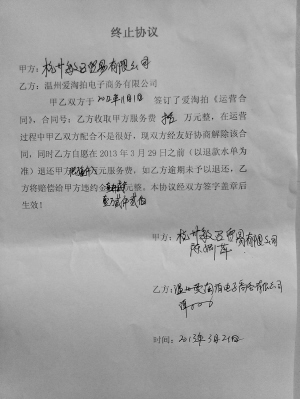 终止协议
甲方：杭州毅正贸易有限公司
乙方：温州爱淘拍电子商务有限公司
甲乙双方于2012年11月1日 签订了爱淘拍《运营合
同》，合同号：乙方收取甲方服务费 万元整，在运营
过程中甲乙双方配合不是很好，现双方经友好协商解除该合
同，同时乙方自愿在 2013 年 3 月 29 日之前（以退款水单为
准）退还甲方 元服务费。如乙方逾期未予以退还，乙
方将赔偿给甲方违约金 元整。本协议经双方签字盖章后
生效！
甲方：杭州 贸易有限公司
陈
乙方：温州爱淘拍电子商务有限公司
时间：2013年3月21日